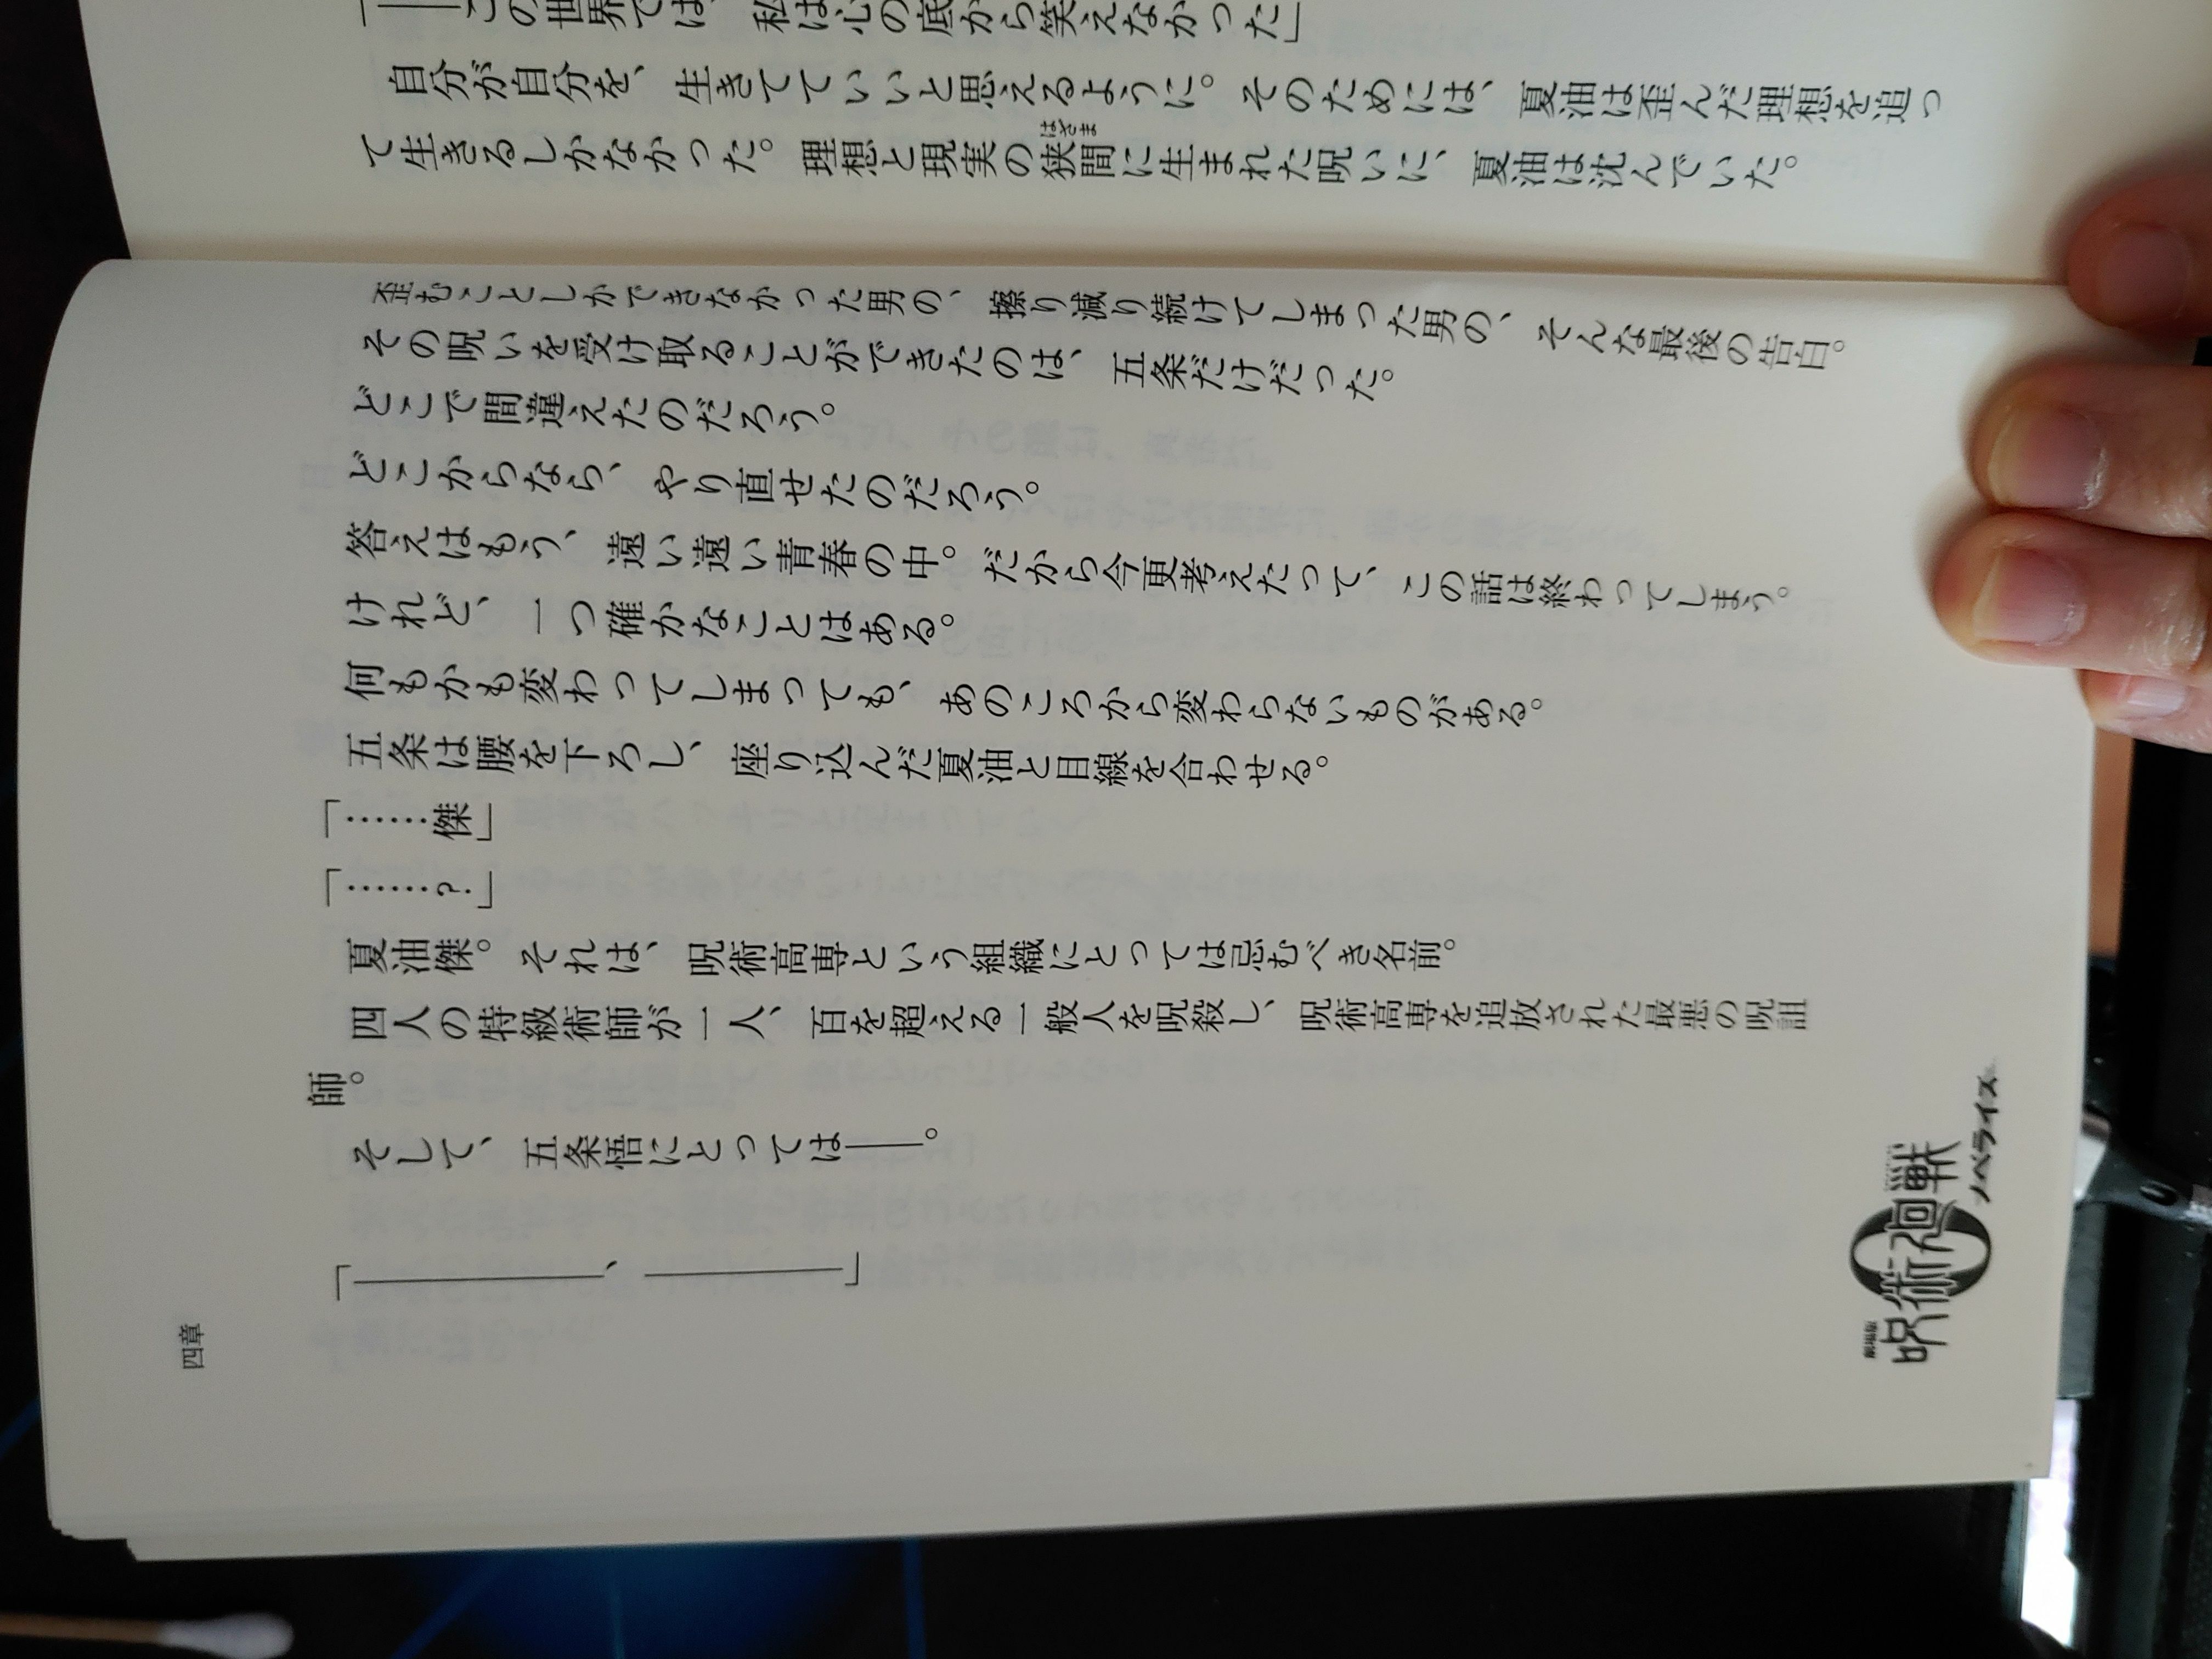 「――この世界では、私は心の底から笑えなかった」
自分が自分を、生きてていいと思えるように。そのためには、夏油は歪んだ理想を追っ
て生きるしかなかった。理想と現実の狭間に生まれた呪いに、夏油は沈んでいた。
はざま
歪むことしかできなかった男の、擦り減り続けてしまった男の、そんな最後の告白。
その呪いを受け取ることができたのは、五条だけだった。
どこで間違えたのだろう。
どこからなら、やり直せたのだろう。
答えはもう、遠い遠い青春の中。だから今更考えたって、この話は終わってしまう。
けれど、一つ確かなことはある。
何もかも変わってしまっても、あのころから変わらないものがある。
五条は腰を下ろし、座り込んだ夏油と目線を合わせる。
「……傑」
「……?」
夏油傑。それは、呪術高専という組織にとっては忌むべき名前。
四人の特級術師が一人、百を超える一般人を呪殺し、呪術高専を追放された最悪の呪詛
師。
そして、五条悟にとっては――。
「――――――、―――――」
四章
劇場版
呪術廻戦
0
ノベライズ